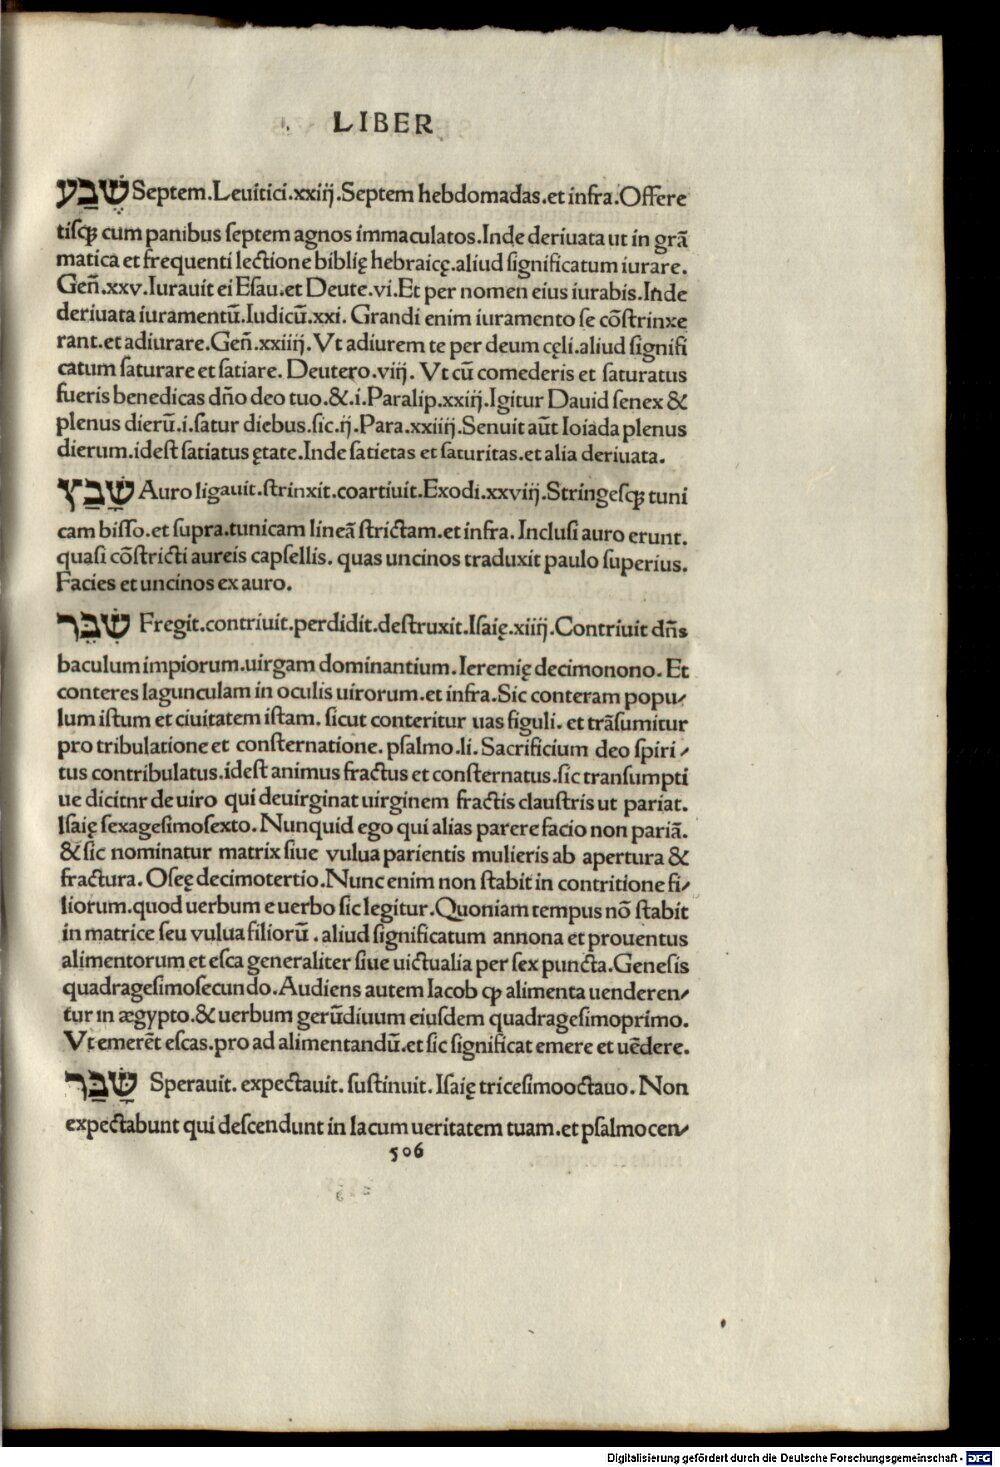 LIBER
שֶׁבַע Septem.Leuitici.xxiij.Septem hebdomadas.et infra.Offere
tisqꝫ cum panibus septem agnos immaculatos.Inde deriuata ut in grã
matica et frequenti lectione biblię hebraicę.aliud significatum iurare.
Geñ.xxv.Iurauit ei Esau.et Deute.vi.Et per nomen eius iurabis.Inde
deriuata iuramentũ.Iudicũ.xxi. Grandi enim iuramento se cõstrinxe
rant.et adiurare.Geñ.xxiiij.Vt adiurem te per deum cęli.aliud signifi
catum saturare et satiare. Deutero.viij. Vt cũ comederis et saturatus
fueris benedicas dño deo tuo.&.i.Paralip.xxiij.Igitur Dauid senex &
plenus dierũ.i.satur diebus.sic.ij.Para.xxiiij.Senuit aũt Ioiada plenus
dierum.idest satiatus ętate.Inde satietas et saturitas.et alia deriuata.
שָׁבַץ Auro ligauit.strinxit.coartiuit.Exodi.xxviij.Stringesqꝫ tuni
cam bisso.et supra.tunicam lineã strictam.et infra. Inclusi auro erunt.
quasi cõstricti aureis capsellis. quas uncinos traduxit paulo superius.
Facies et uncinos ex auro.
שִׁבֵּר Fregit.contriuit.perdidit.destruxit.Isaię.xiiij.Contriuit dñs
baculum impiorum.uirgam dominantium.Ieremię decimonono. Et
conteres lagunculam in oculis uirorum.et infra.Sic conteram popu⸗
lum istum et ciuitatem istam. sicut conteritur uas figuli. et trãsumitur
pro tribulatione et consternatione. psalmo.li. Sacrificium deo spiri⸗
tus contribulatus.idest animus fractus et consternatus.sic transumpti
ue dicitnr de uiro qui deuirginat uirginem fractis claustris ut pariat.
Isaię sexagesimosexto.Nunquid ego qui alias parere facio non pariã.
& sic nominatur matrix siue vulua parientis mulieris ab apertura &
fractura. Oseę decimotertio.Nunc enim non stabit in contritione fi⸗
liorum.quod uerbum e uerbo sic legitur.Quoniam tempus nõ stabit
in matrice seu vulua filiorũ.aliud significatum annona et prouentus
alimentorum et esca generaliter siue uictualia per sex puncta.Genesis
quadragesimosecundo.Audiens autem Iacob ꝙ alimenta uenderen⸗
tur in ægypto.& uerbum gerũdiuum eiusdem quadragesimoprimo.
Vt emerẽt escas.pro ad alimentandũ.et sic significat emere et uẽdere.
שָׂבַּר Sperauit. expectauit. sustinuit. Isaię tricesimooctauo. Non
expectabunt qui descendunt in lacum ueritatem tuam.et psalmo cen⸗
506
Digitalisierung gefördert durch die Deutsche Forschungsgemeinschaft - DFG